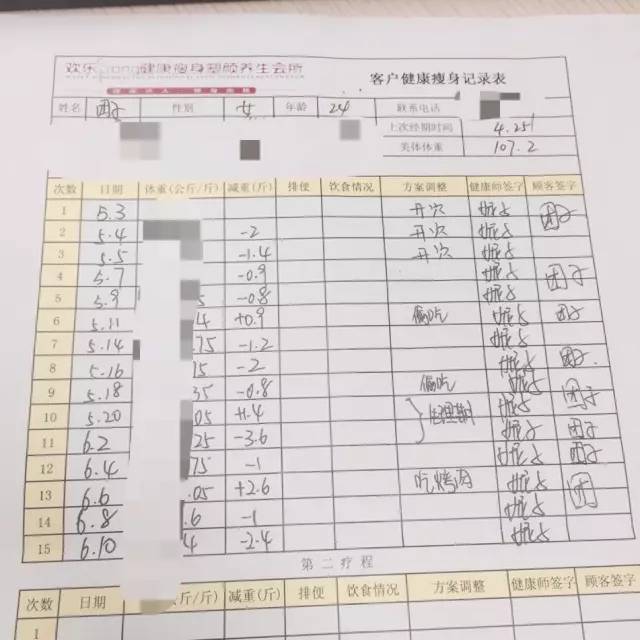 健康瘦身塑颜养生会所
客户健康瘦身记录表
姓名 团子 性别 女 年龄 24 联系电话
上次经期时间 4.25
美体体重 107.2
次数 日期 体重(公斤/斤) 减重(斤) 排便 饮食情况 方案调整 健康师签字 顾客签字
1 5.3 开穴 团子
2 5.4 -2 开穴
3 5.5 -1.4 开穴
4 5.7 -0.9 团子
5 5.9 5 -0.8
6 5.11 4 +0.9 偏吃 团子
7 5.14 75 -1.2
8 5.16 15 -2 团子
9 5.18 35 -0.8 偏吃 团
10 5.20 05 +1.4 生理期
11 6.2 25 -3.6 团子
12 6.4 75 -1
13 6.6 .05 +2.6 吃烤肉 团
14 6.8 .6 -1
15 6.10 4 -2.4
第二疗程
次数 日期 公斤/斤) 减重(斤) 排便 饮食情况 方案调整 健康师签字 顾客签字
1